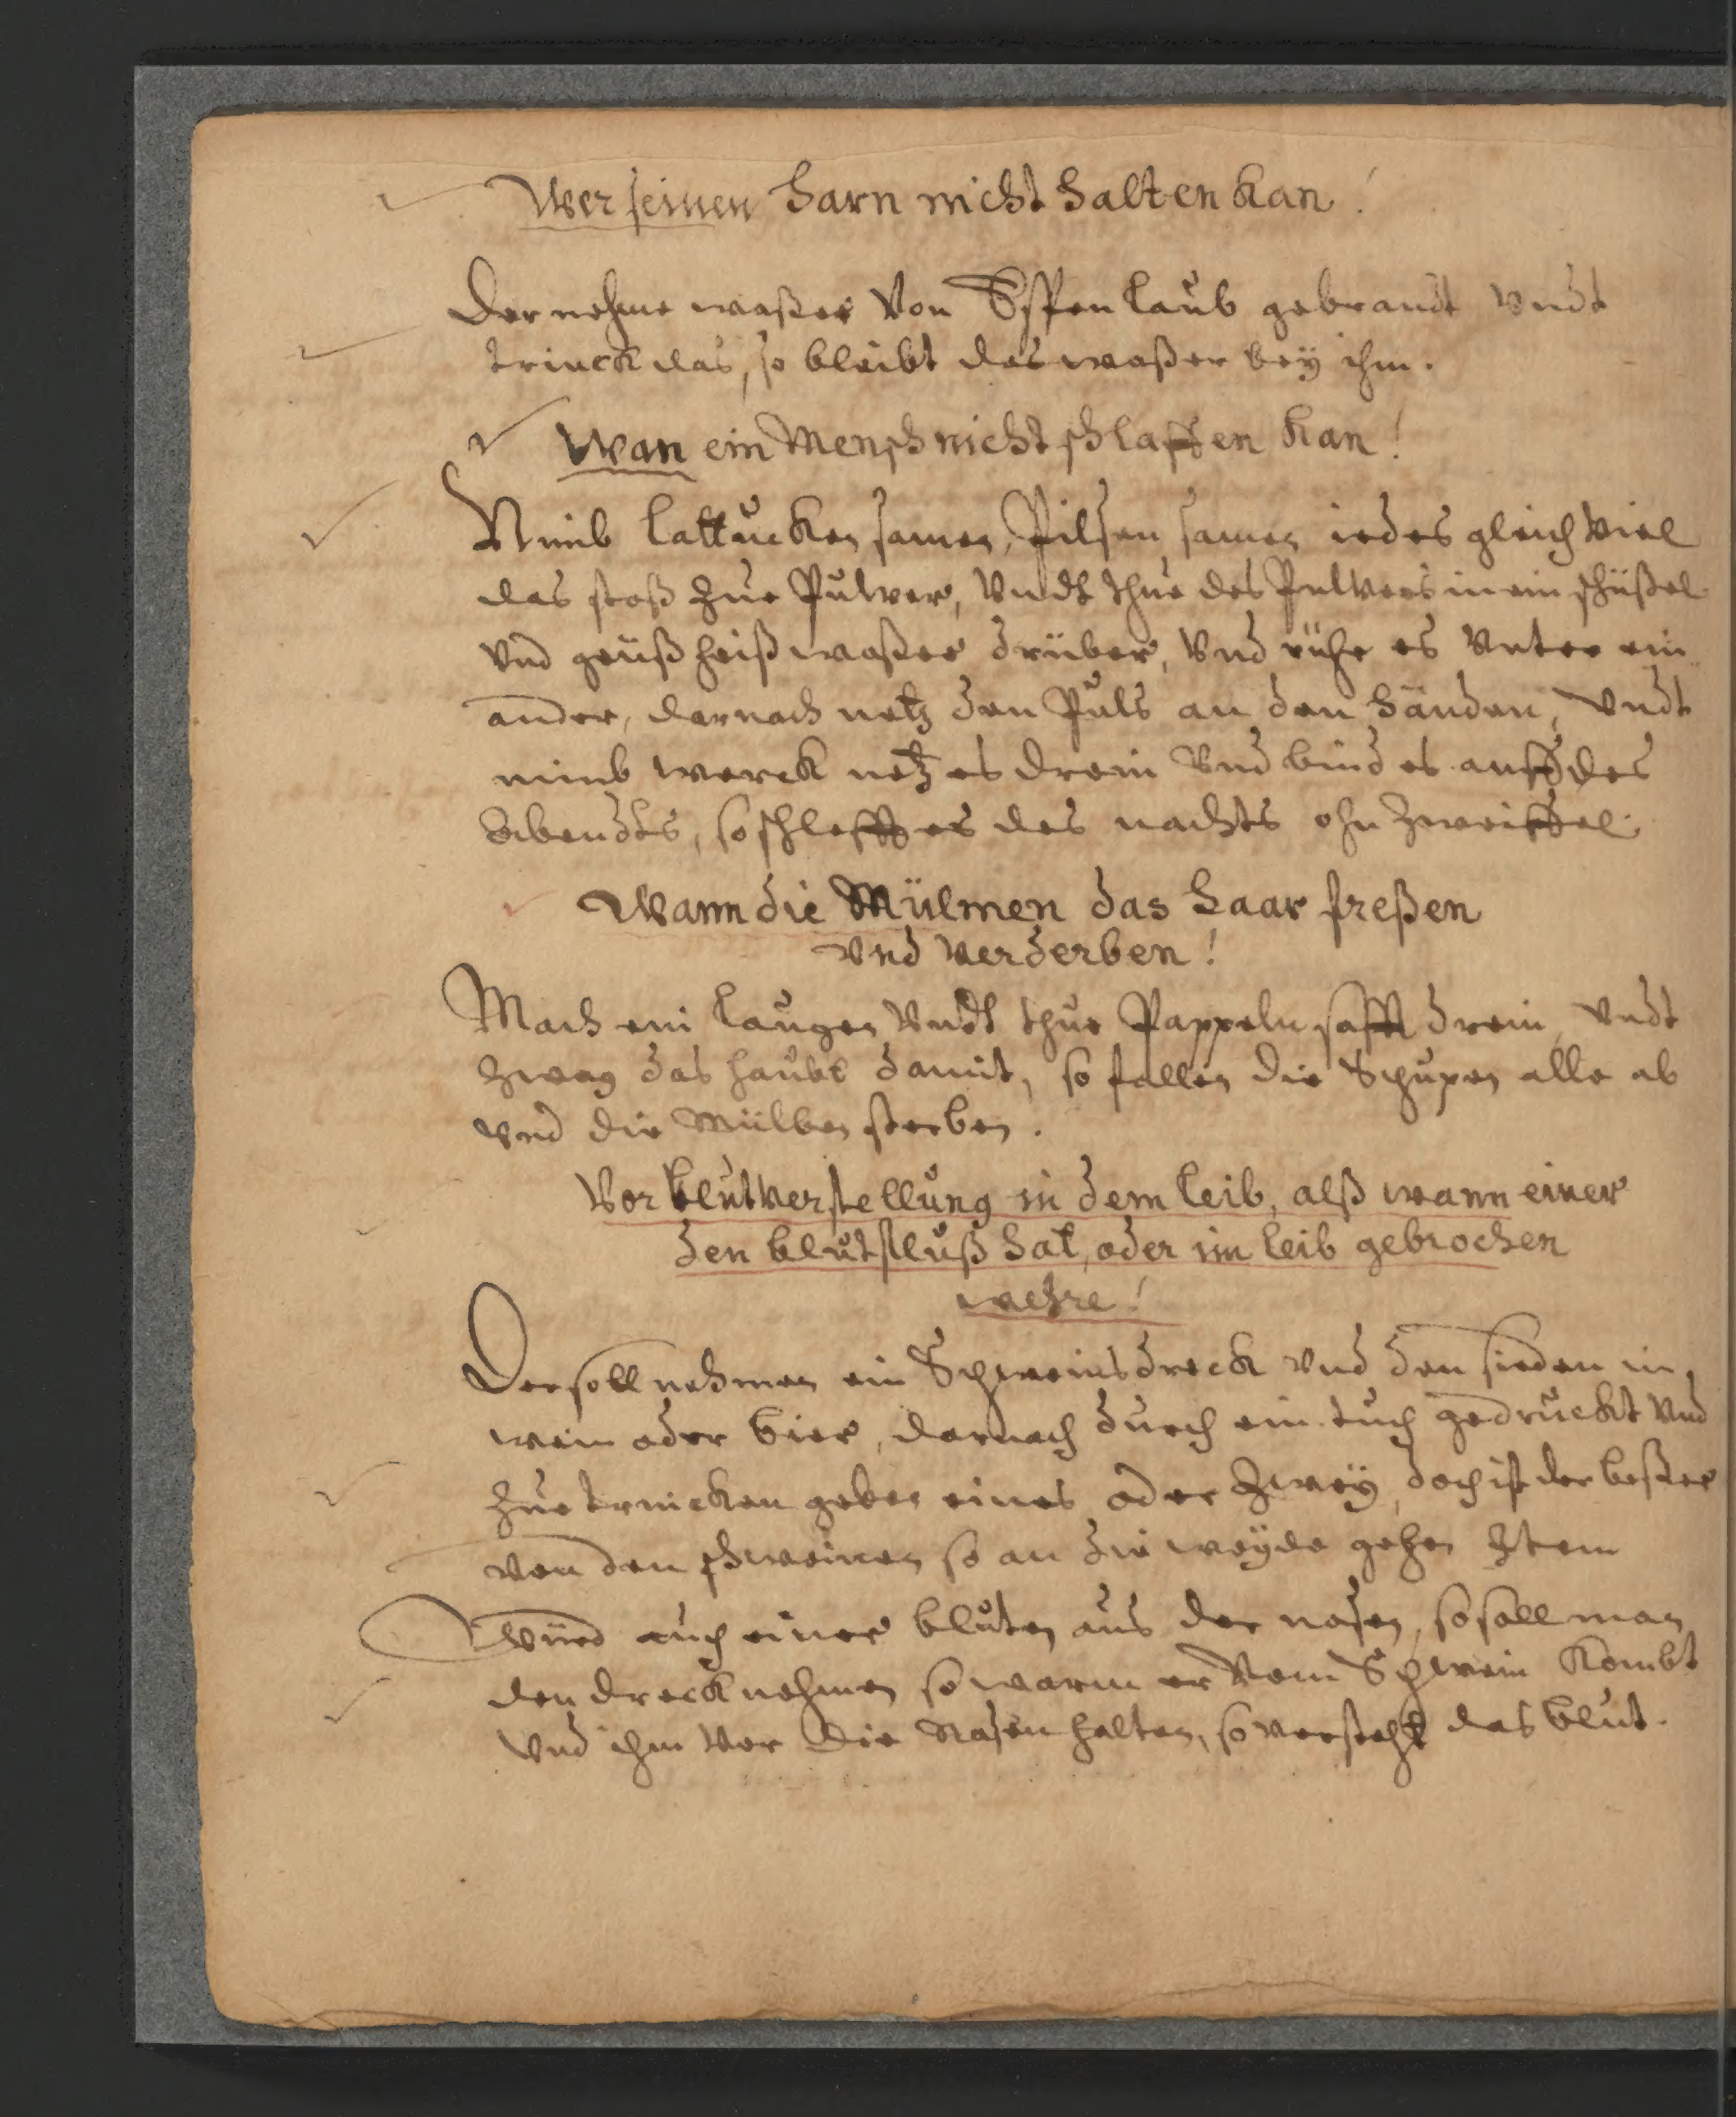 Wer seinen Harn nicht halten kan!
Der nehme waßer Von Espen laub gebrandt Vndt
trinck das, so bleibt das waßer bey ihm.
Wan ein Mensch nicht schlaffen kan!
Nimb lattucken samen, Pilsen samen iedes gleich Viel
das stoß zue Pulver, Vndt thue des Pulvers in ein schüßel
Vnd geüß heiß waßer drüber, Vnd rühr es Vnter ein
ander, darnach netz den Puls an den händen, Vndt
nimb werck netz es drein Vnd bind es auff des
Abendts, so schlefft er des nachts ohn zweiffel.
Wann die Mülmen das Haar freßen
Vnd Verderben!
Mach ein laugen Vndt thue Pappeln safft drein, Vndt
zwag das haubt damit, so fallen die Schupen alle ab
Vnd die Mülben sterben.
Vor blutverstellung in dem leib, alß wann einer
den blutfluß hat, oder im leib gebrochen
wehre!
Der soll nehmen ein Schweinsdreck Vnd den sieden in
wein oder bier, darnach durch ein tuch gedruckt Vnd
zue trincken geben eines oder zwey, doch ist der beßer
von den schweinen so an die weyde gehen Item
Würd auch einer bluten aus der nasen, so soll man
den dreck nehmen so warm er Vom Schwein kombt
Vnd ihm Vor die Nasen halten, so versteht das blut.